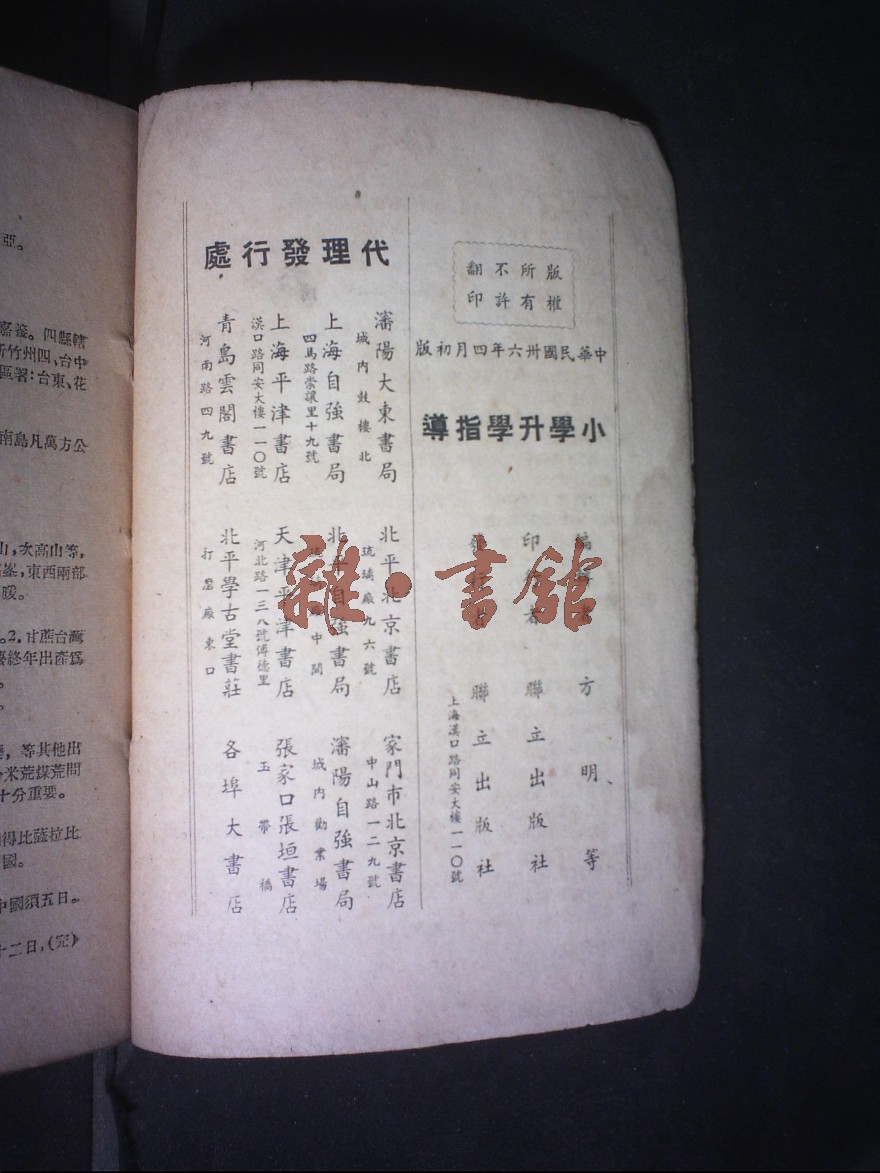 版權
所有
不許
翻印
中華民國卅六年四月初版
小學升學指導
編著者 方明等
印行者 聯立出版社
發行者 聯立出版社
上海漢口路同安大樓一一〇號
代理發行處
瀋陽大東書局
城內鼓樓北
上海自強書局
四馬路崇讓里十九號
上海平津書店
漢口路同安大樓一一〇號
青島雲閣書店
河南路四九號
北平北京書店
琉璃廠九六號
北平自強書局
中間
天津平津書店
河北路一三八號傅德里
北平學古堂書莊
打磨廠東口
家門市北京書店
中山路一二九號
瀋陽自強書局
城內勸業場
張家口張垣書店
玉帶橋
各埠大書店
雜·書館
亞。
嘉義。四縣轄
新竹州四、台中
區署:台東、花
南島凡萬方公
山,次高山等,
峯,東西兩部
暖。
。2.甘蔗台灣
終年出產爲
。
,等其他出
米荒煤荒問
十分重要。
得比薩拉比
國。
中國須五日。
十二日,(完)